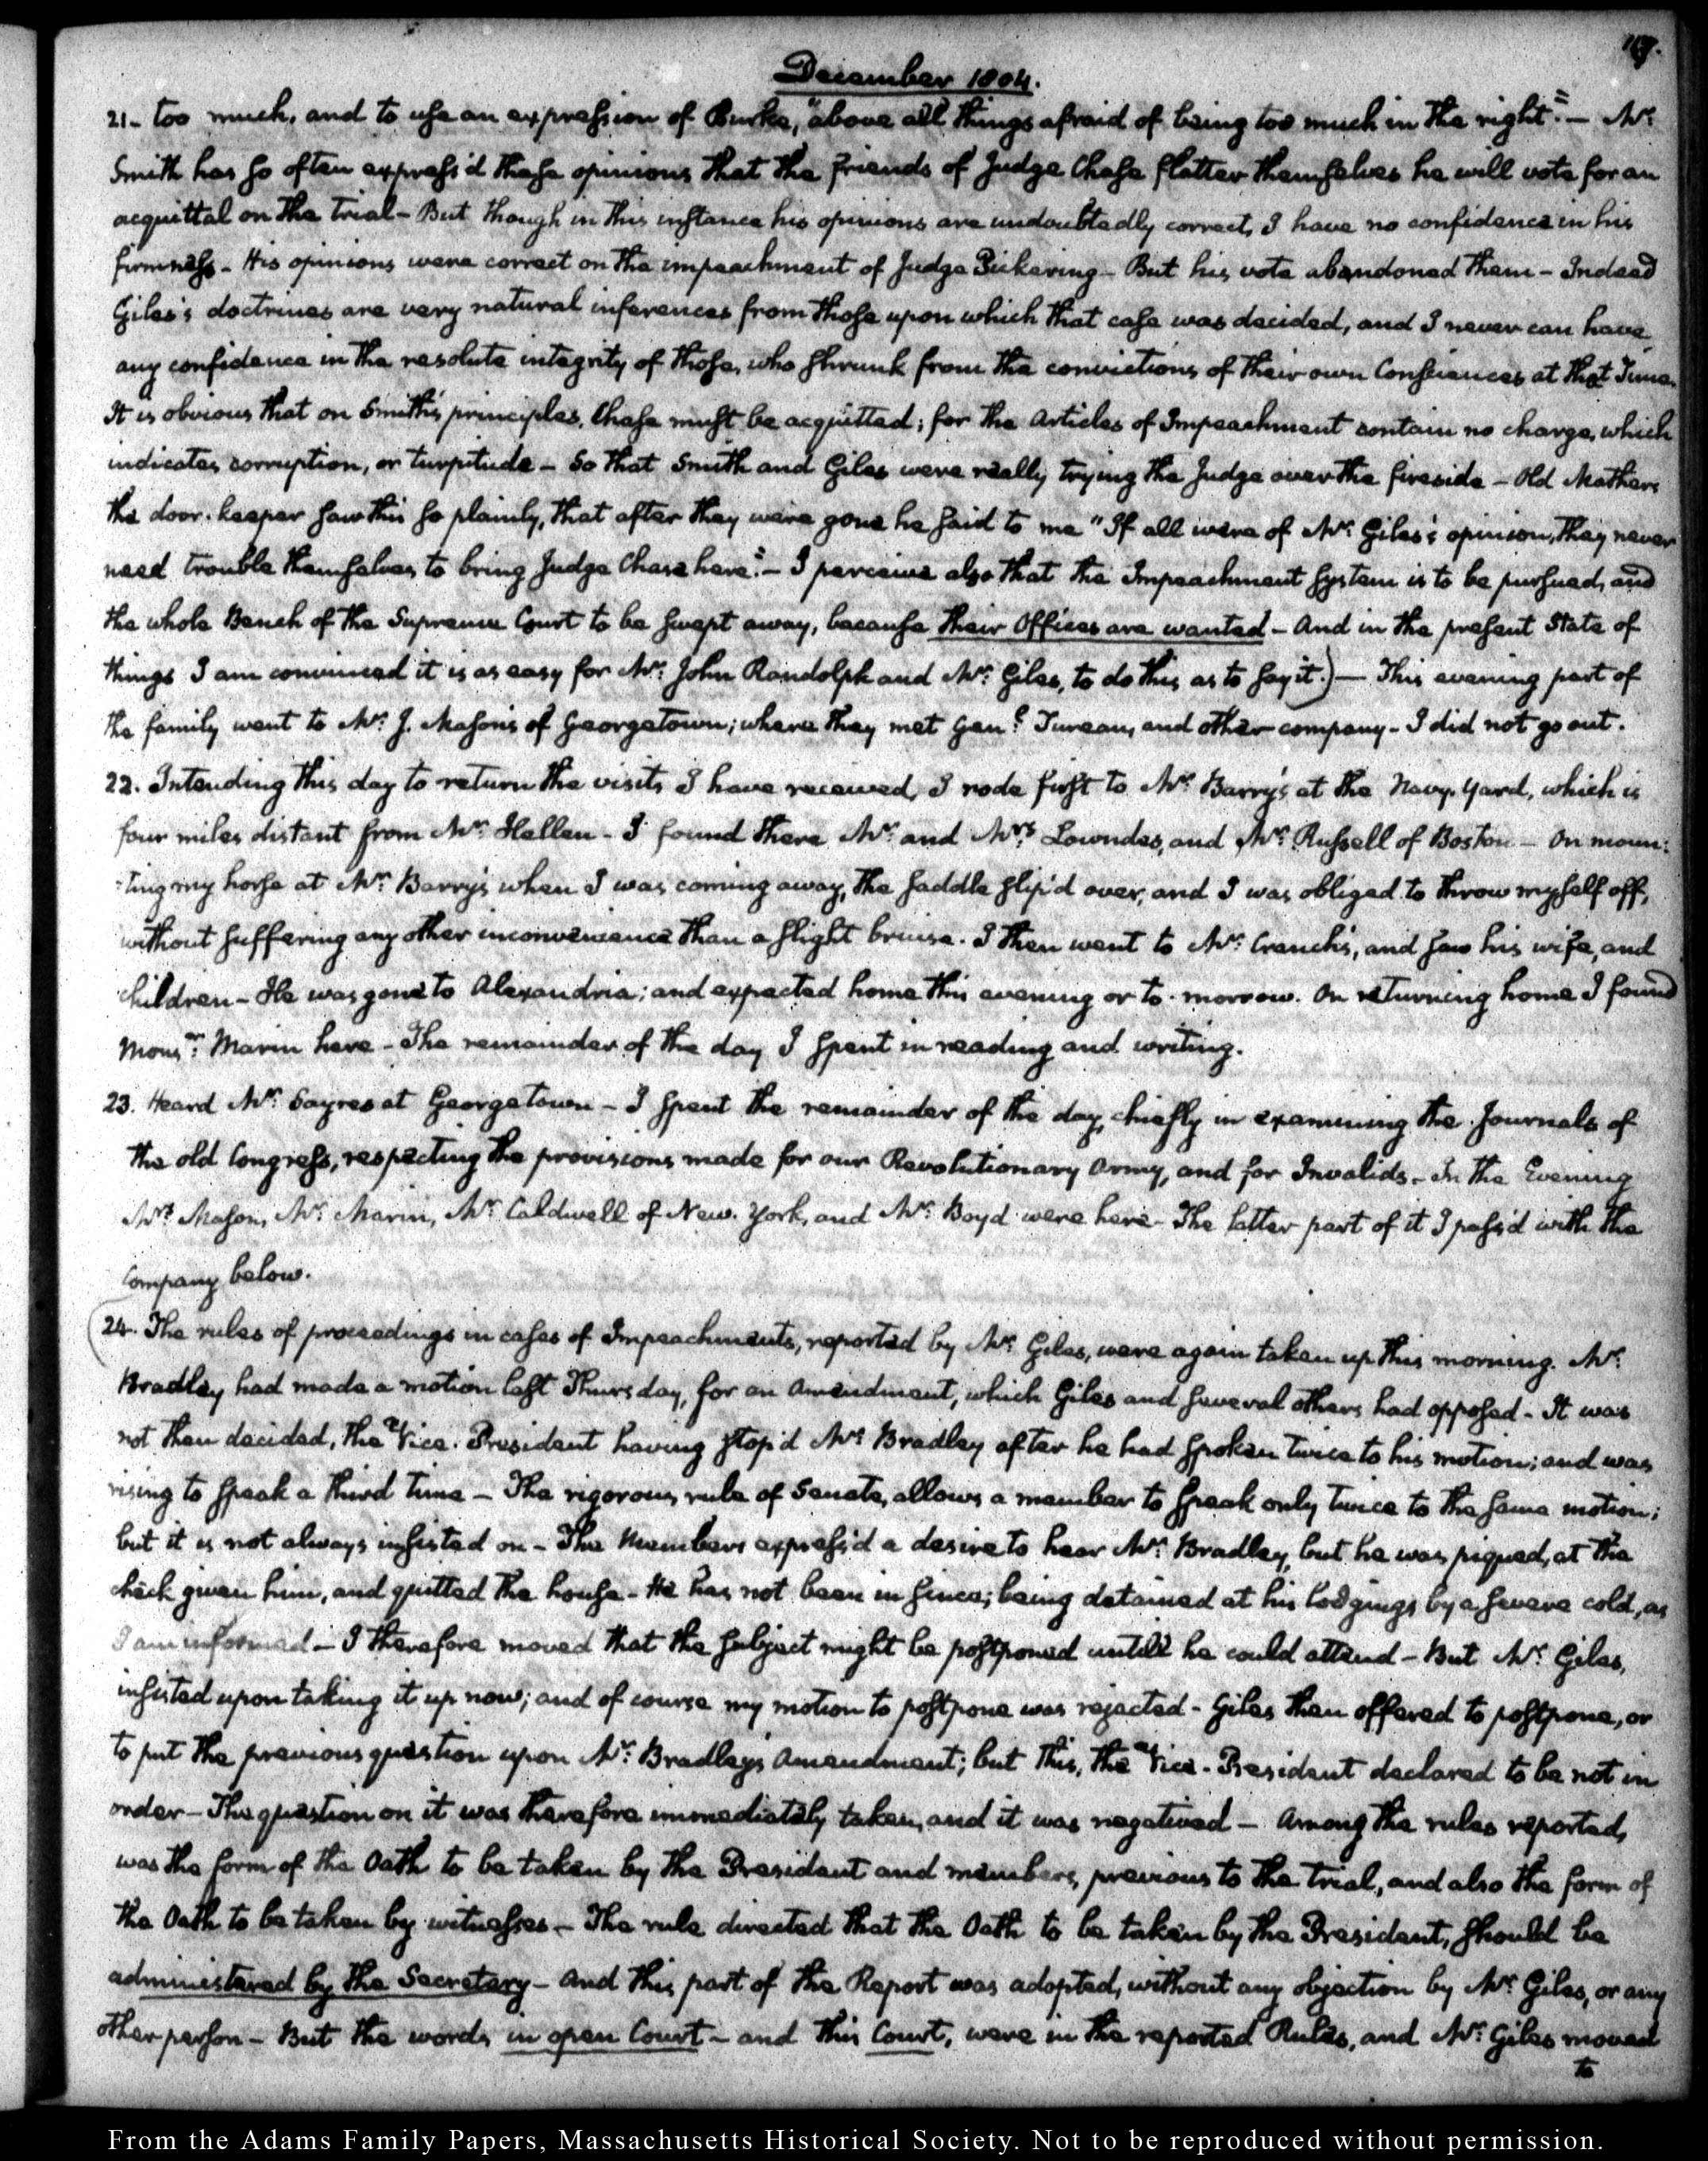 117.
December 1804.
21- too much, and to use an expression of Burke, "above all things afraid of being too much in the right."— Mr:
Smith has so often express'd these opinions that the friends of Judge Chase flatter themselves he will vote for an
acquittal on the trial— But though in this instance his opinions are undoubtedly correct, I have no confidence in his
firmness— His opinions were correct on the impeachment of Judge Pickering— But his vote abandoned them— Indeed
Giles's doctrines are very natural inferences from those upon which that case was decided, and I never can have
any confidence in the resolute integrity of those, who shrunk from the convictions of their own Consciences at that Time.
It is obvious that on Smith's principles, Chase must be acquitted; for the Articles of Impeachment contain no charge, which
indicates corruption, or turpitude— So that Smith and Giles were really trying the Judge over the fireside— Old Mathers
the door-keeper saw this so plainly, that after they were gone he said to me "If all were of Mr: Giles's opinion, they never
need trouble themselves to bring Judge Chase here."— I perceive also that the Impeachment System is to be pursued, and
the whole Bench of the Supreme Court to be swept away, because their Offices are wanted— And in the present State of
things I am convinced it is as easy for Mr: John Randolph and Mr: Giles, to do this as to say it.)— This evening part of
the family went to Mr: J. Mason's of Georgetown; where they met Genl: Tureau, and other company- I did not go out.
22. Intending this day to return the visits I have received, I rode first to Mr: Barry's at the Navy-Yard, which is
four miles distant from Mr: Hellen- I found there Mr: and Mrs: Lowndes, and Mr: Russell of Boston— On moun:
:ting my horse at Mr: Barry's when I was coming away, the saddle slip'd over, and I was obliged to throw myself off,
without suffering any other inconvenience than a slight bruise. I then went to Mr: Cranch's, and saw his wife, and
children— He was gone to Alexandria; and expected home this evening or to-morrow. On returning home I found
Monsr: Marin here- The remainder of the day I spent in reading and writing.
23. Heard Mr: Sayres at Georgetown— I spent the remainder of the day, chiefly in examining the Journals of
the old Congress, respecting the provisions made for our Revolutionary Army, and for Invalids- In the Evening
Mr: Mason, Mr: Marin, Mr: Caldwell of New-York, and Mr: Boyd were here- The latter part of it I pass'd with the
Company below.
(24. The rules of proceedings in cases of Impeachments, reported by Mr: Giles, were again taken up this morning. Mr:
Bradley had made a motion last Thursday, for an Amendment, which Giles and several others had opposed- It was
not then decided, the Vice-President having stop'd Mr: Bradley after he had spoken twice to his motion; and was
rising to speak a third time— The rigorous rule of Senate, allows a member to speak only twice to the same motion;
but it is not always insisted on— The Members express'd a desire to hear Mr: Bradley, but he was piqued, at the
check given him, and quitted the house- He has not been in since; being detained at his lodgings by a severe cold, as
I am informed— I therefore moved that the subject might be postponed untill he could attend— But Mr: Giles,
insisted upon taking it up now; and of course my motion to postpone was rejected- Giles then offered to postpone, or
to put the previous question upon Mr: Bradley's Amendment; but this, the Vice-President declared to be not in
order— The question on it was therefore immediately taken, and it was negatived— Among the rules reported,
was the form of the Oath to be taken by the President and members, previous to the trial, and also the form of
the Oath to be taken by witnesses— The rule directed that the Oath to be taken by the President, should be
administered by the Secretary— And this part of the Report was adopted, without any objection by Mr: Giles, or any
other person— But the words, in open Court— and this Court, were in the reported Rules, and Mr: Giles moved
to
From the Adams Family Papers, Massachusetts Historical Society. Not to be reproduced without permission.